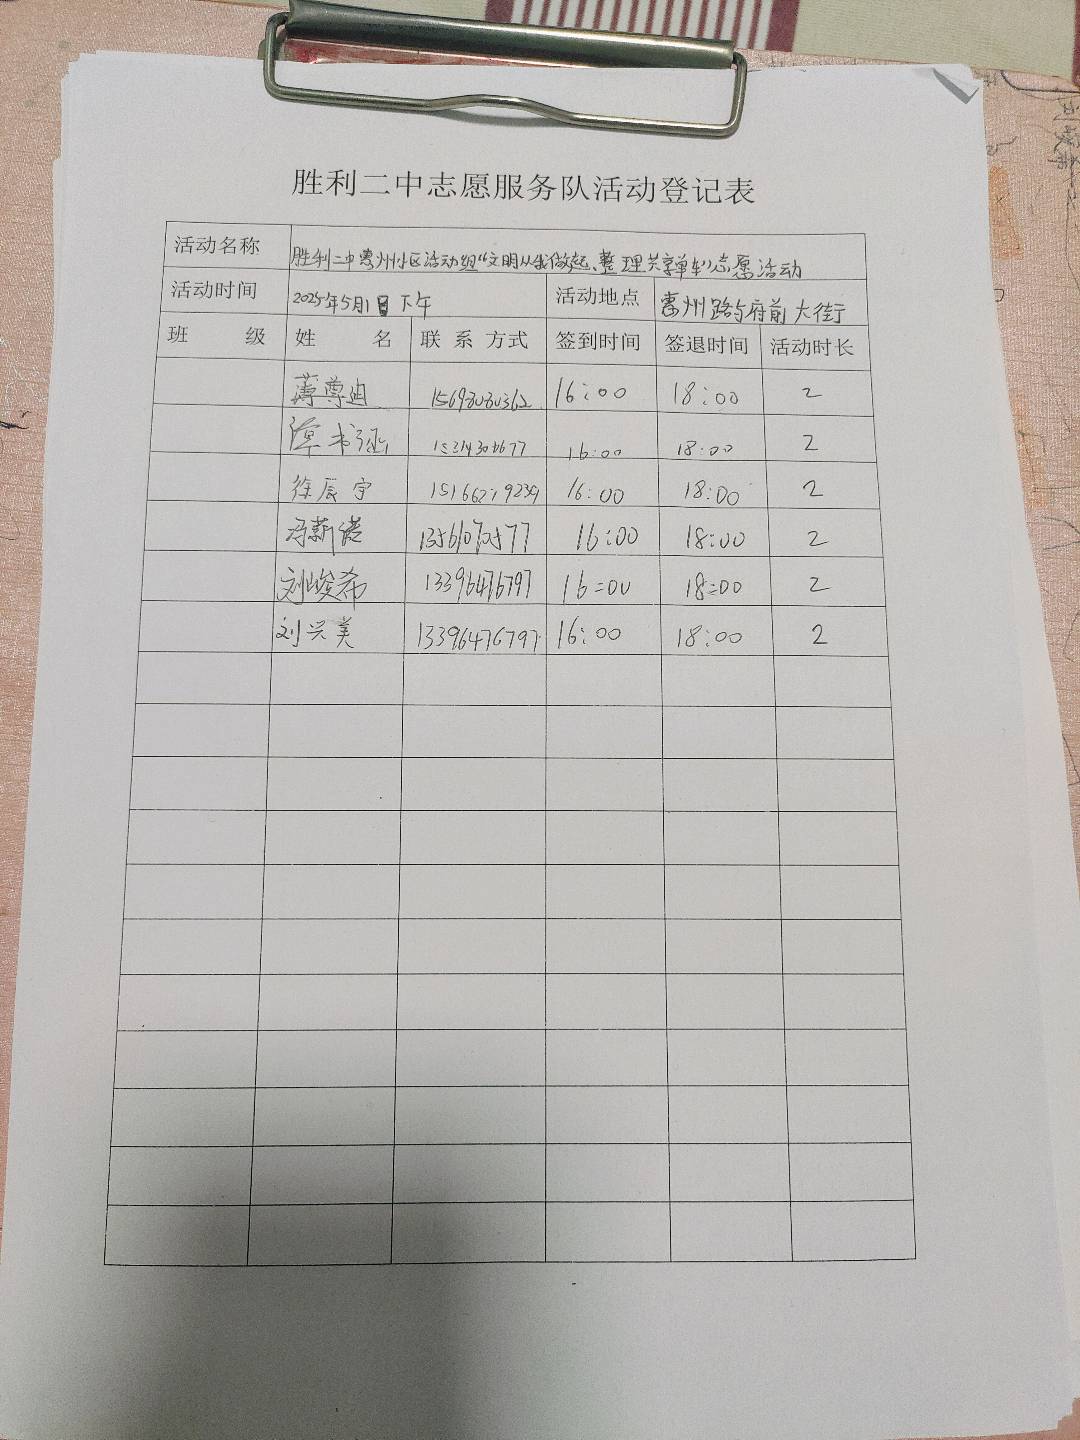 胜利二中志愿服务队活动登记表
活动名称 胜利二中惠州小区活动组“文明从我做起、整理共享单车”志愿活动
活动时间 2025年5月1日下午 活动地点 惠州路与府前大街
班 级 姓 名 联 系 方式 签到时间 签退时间 活动时长
薄尊迪 16:00 18:00 2
16:00 18:00 2
徐辰宇 16:00 18:00 2
冯新偌 16:00 18:00 2
刘峻希 13396476797 16:00 18:00 2
刘兴美 13396476797 16:00 18:00 2
刘峻希